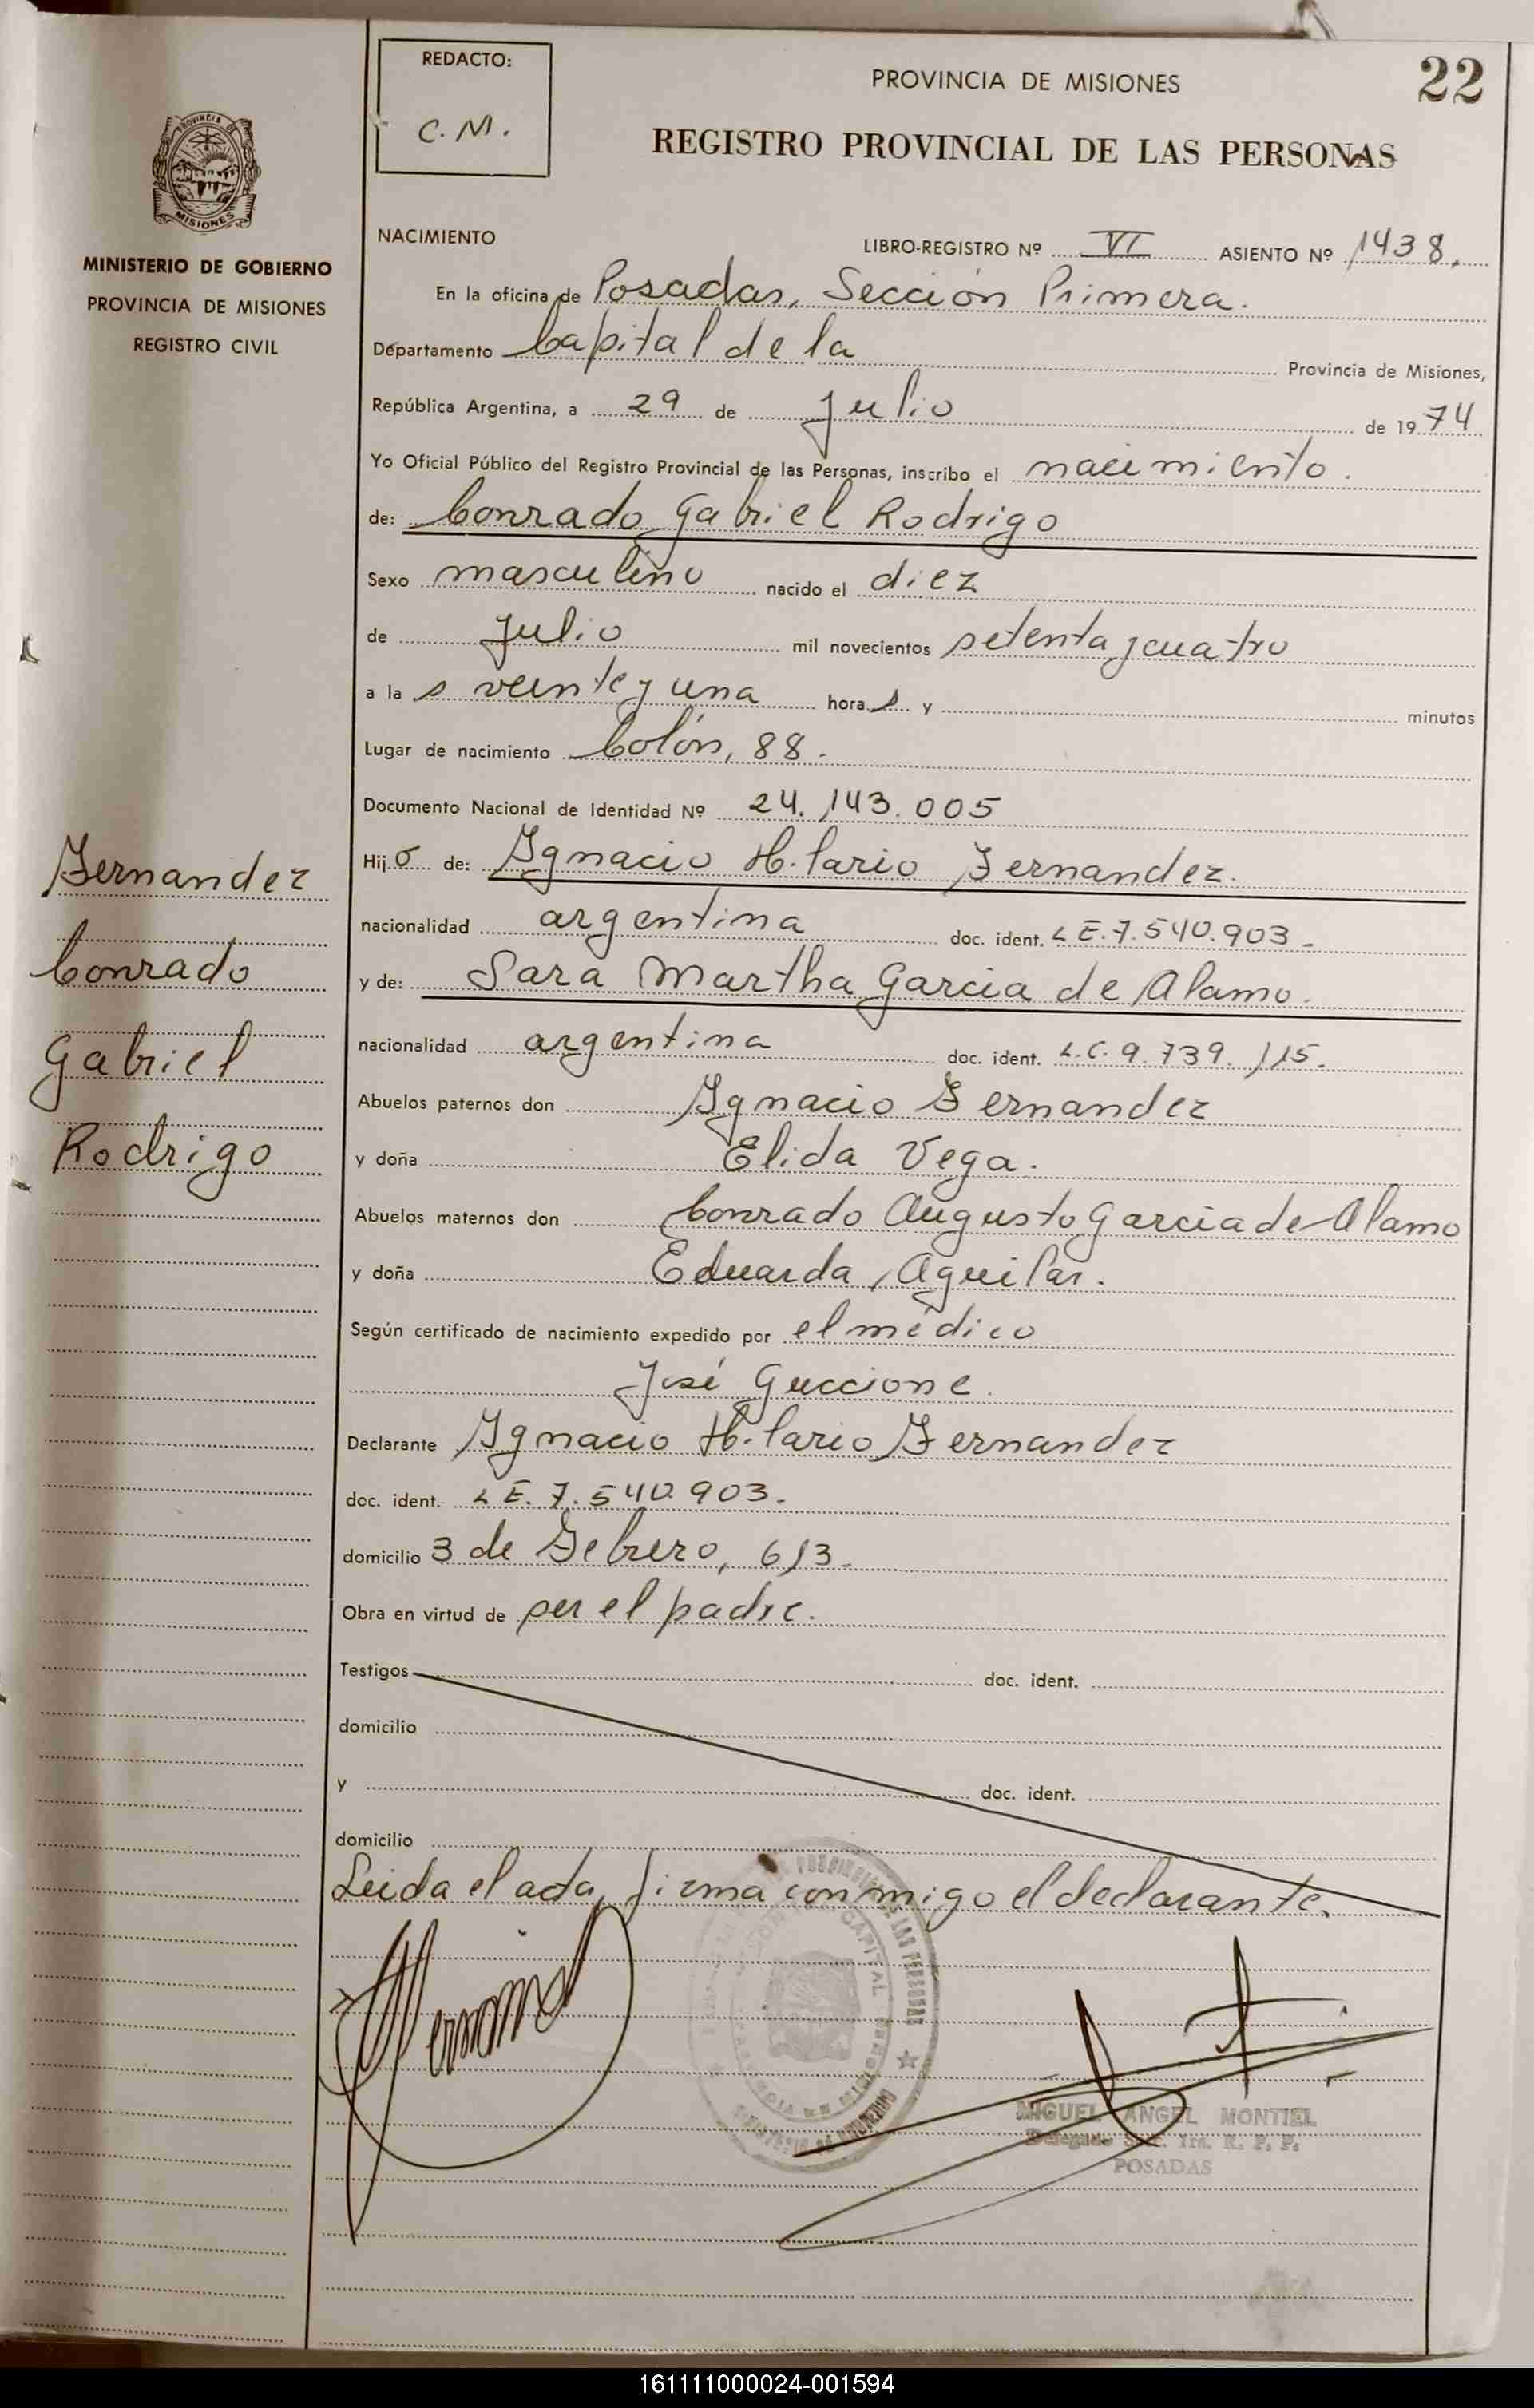 REDACTO:
C.M.
PROVINCIA DE MISIONES
22
REGISTRO PROVINCIAL DE LAS PERSONAS
PROVINCIA
MISIONES
MINISTERIO DE GOBIERNO
PROVINCIA DE MISIONES
REGISTRO CIVIL
NACIMIENTO
LIBRO-REGISTRO Nº VI ASIENTO Nº 1438.
En la oficina de Posadas, Sección Primera.
Departamento Capital de la Provincia de Misiones,
República Argentina, a 29 de Julio de 1974
Yo Oficial Público del Registro Provincial de las Personas, inscribo el nacimiento.
de: Conrado Gabriel Rodrigo
Sexo masculino nacido el diez
de Julio mil novecientos setenta y cuatro
a la s veinte y una hora s y minutos
Lugar de nacimiento Colón, 88.
Documento Nacional de Identidad Nº 24.143.005
Hij o de: Ignacio Hilario Fernandez.
nacionalidad argentina doc. ident. L E. 7.540.903 -
y de: Sara Martha Garcia de Alamo.
nacionalidad argentina doc. ident. L.C. 9.739.115.
Abuelos paternos don Ignacio Fernandez
y doña Elida Vega.
Abuelos maternos don Conrado Augusto Garcia de Alamo
y doña Eduarda Aguilar.
Según certificado de nacimiento expedido por el médico
José Guccione.
Declarante Ignacio Hilario Fernandez
doc. ident. L E. 7.540.903.
domicilio 3 de Febrero, 613-
Obra en virtud de ser el padre.
Testigos doc. ident.
domicilio
y doc. ident.
domicilio
Leida el acta, firma conmigo el declarante.
Fernandez
Conrado
Gabriel
Rodrigo
MIGUEL ANGEL MONTIEL
Delegado Sec. 1ra. R. P. P.
POSADAS
161111000024-001594